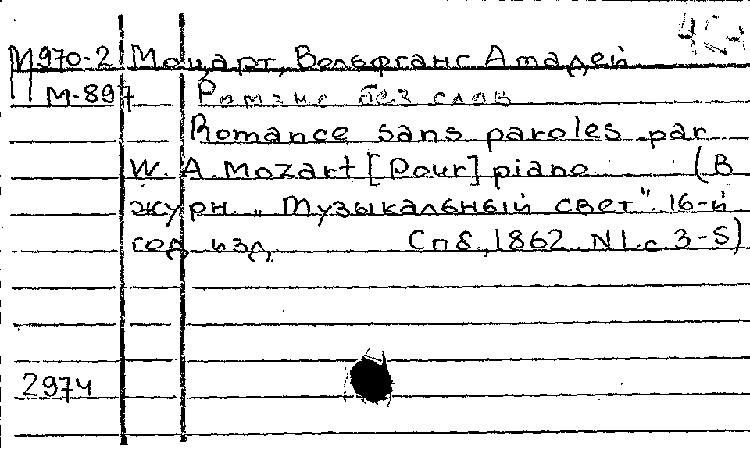 М970-2 Моцарт, Вольфганг Амадей
М-897 Романс без слов
Romance sans paroles par
W. A. Mozart [Pour] piano (В
журн. „Музыкальный свет". 16-й
год изд. Спб, 1862 N1. с 3-5)
2974